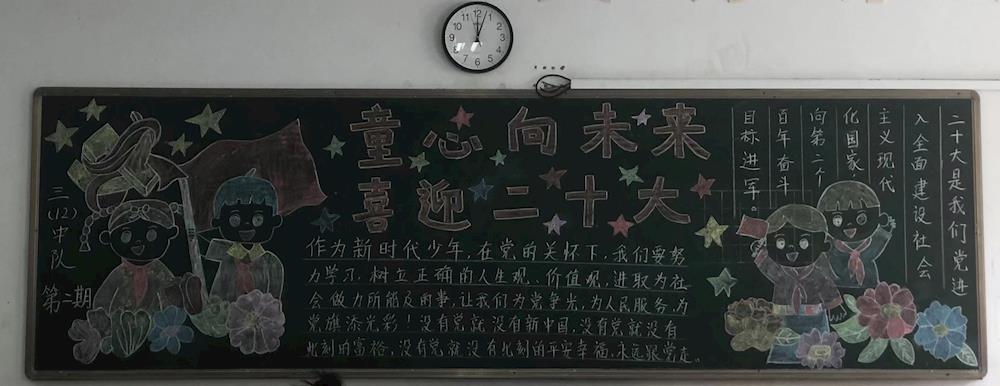 12
1
2
3
4
5
6
7
8
9
10
11
童心向未来
喜迎二十大
三(12)中队
第二期
作为新时代少年,在党的关怀下,我们要努
力学习,树立正确的人生观、价值观,进取为社
会做力所能及的事,让我们为党争光,为人民服务,为
党旗添光彩!没有党就没有新中国,没有党就没有
此刻的富裕,没有党就没有此刻的平安幸福,永远跟党走。
二十大是我们党进
入全面建设社会
主义现代
化国家,
向第二个
百年奋斗
目标进军。